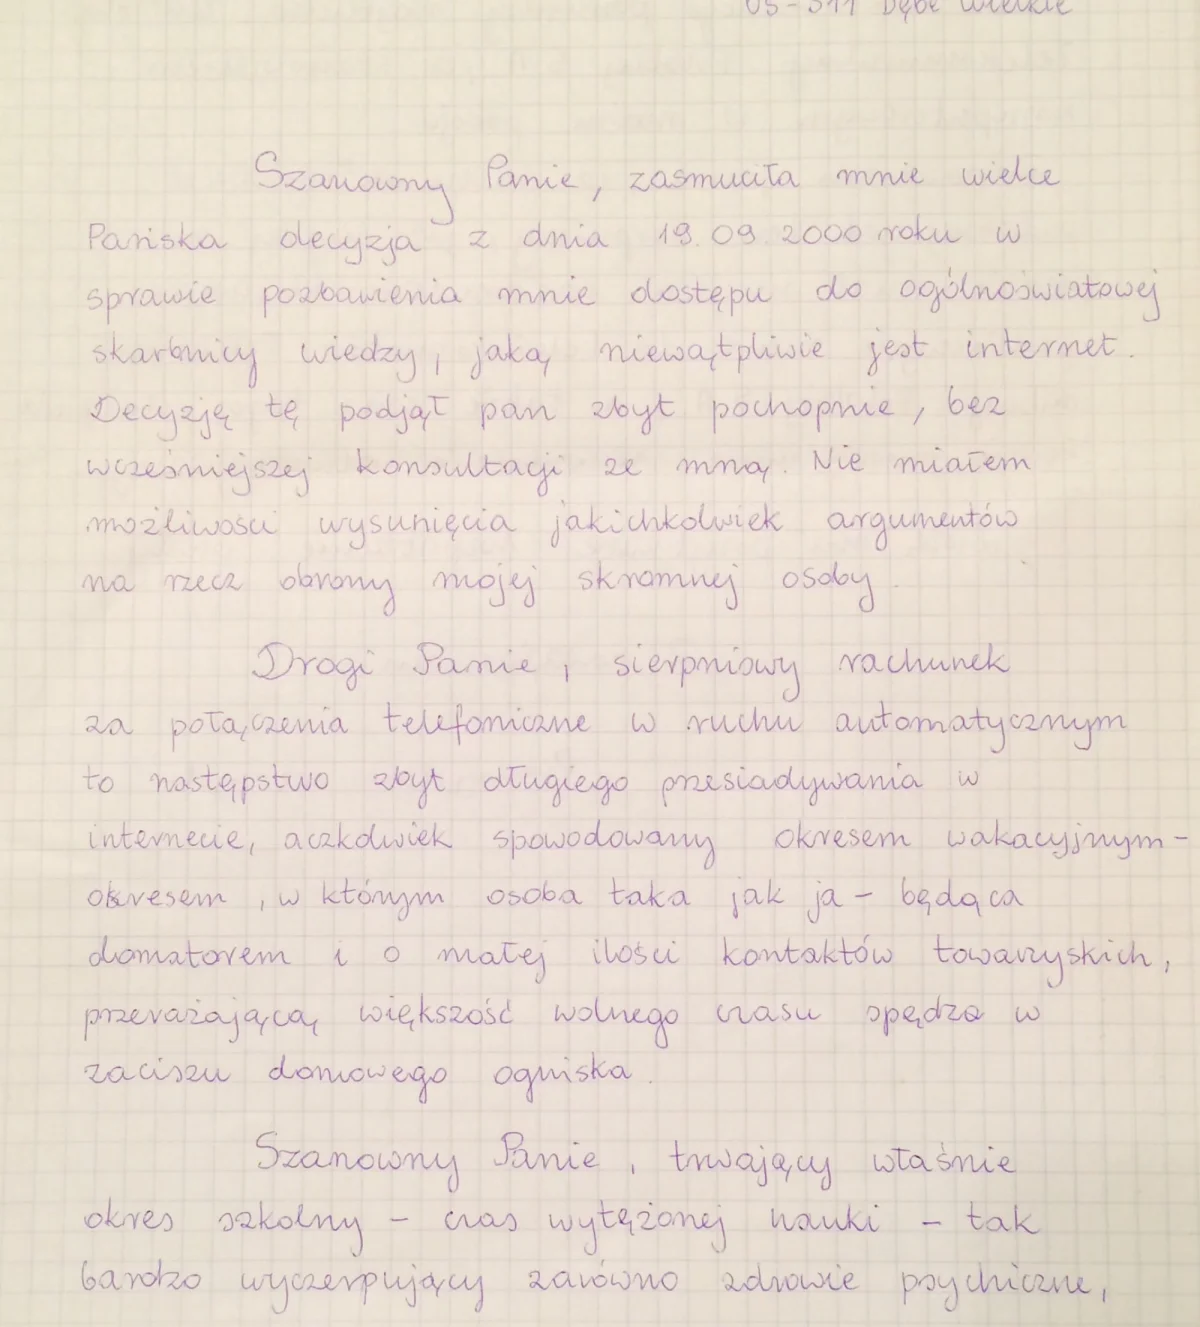 05-311 Dębe Wielkie
Szanowny Panie, zasmuciła mnie wielce
Pańska decyzja z dnia 19.09.2000 roku w
sprawie pozbawienia mnie dostępu do ogólnoświatowej
skarbnicy wiedzy, jaką niewątpliwie jest internet.
Decyzję tę podjął pan zbyt pochopnie, bez
wcześniejszej konsultacji ze mną. Nie miałem
możliwości wysunięcia jakichkolwiek argumentów
na rzecz obrony mojej skromnej osoby.
Drogi Panie, sierpniowy rachunek
za połączenia telefoniczne w ruchu automatycznym
to następstwo zbyt długiego przesiadywania w
internecie, aczkolwiek spowodowany okresem wakacyjnym -
okresem, w którym osoba taka jak ja - będąca
domatorem i o małej ilości kontaktów towarzyskich,
przeważającą większość wolnego czasu spędza w
zaciszu domowego ogniska.
Szanowny Panie, trwający właśnie
okres szkolny - czas wytężonej nauki - tak
bardzo wyczerpujący zarówno zdrowie psychiczne,